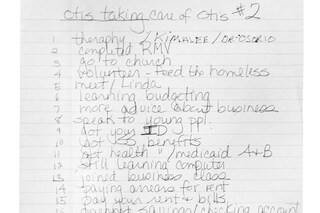 otis taking care of otis #2
1 theraphy / Kimalee / Dr. Osorio
2 completed RMV
3 go to church
4 volunteer - feed the homeless
5 meet / Linda
6 learning budgeting
7 more advice about business
8 speak to young ppl.
9 got your ID
10 got SS benefits
11 got health " / medicaid A+B
12 still learning computer
13 joined business class
14 paying arears for rent
15 pay your rent + bills
16 savings / checking account